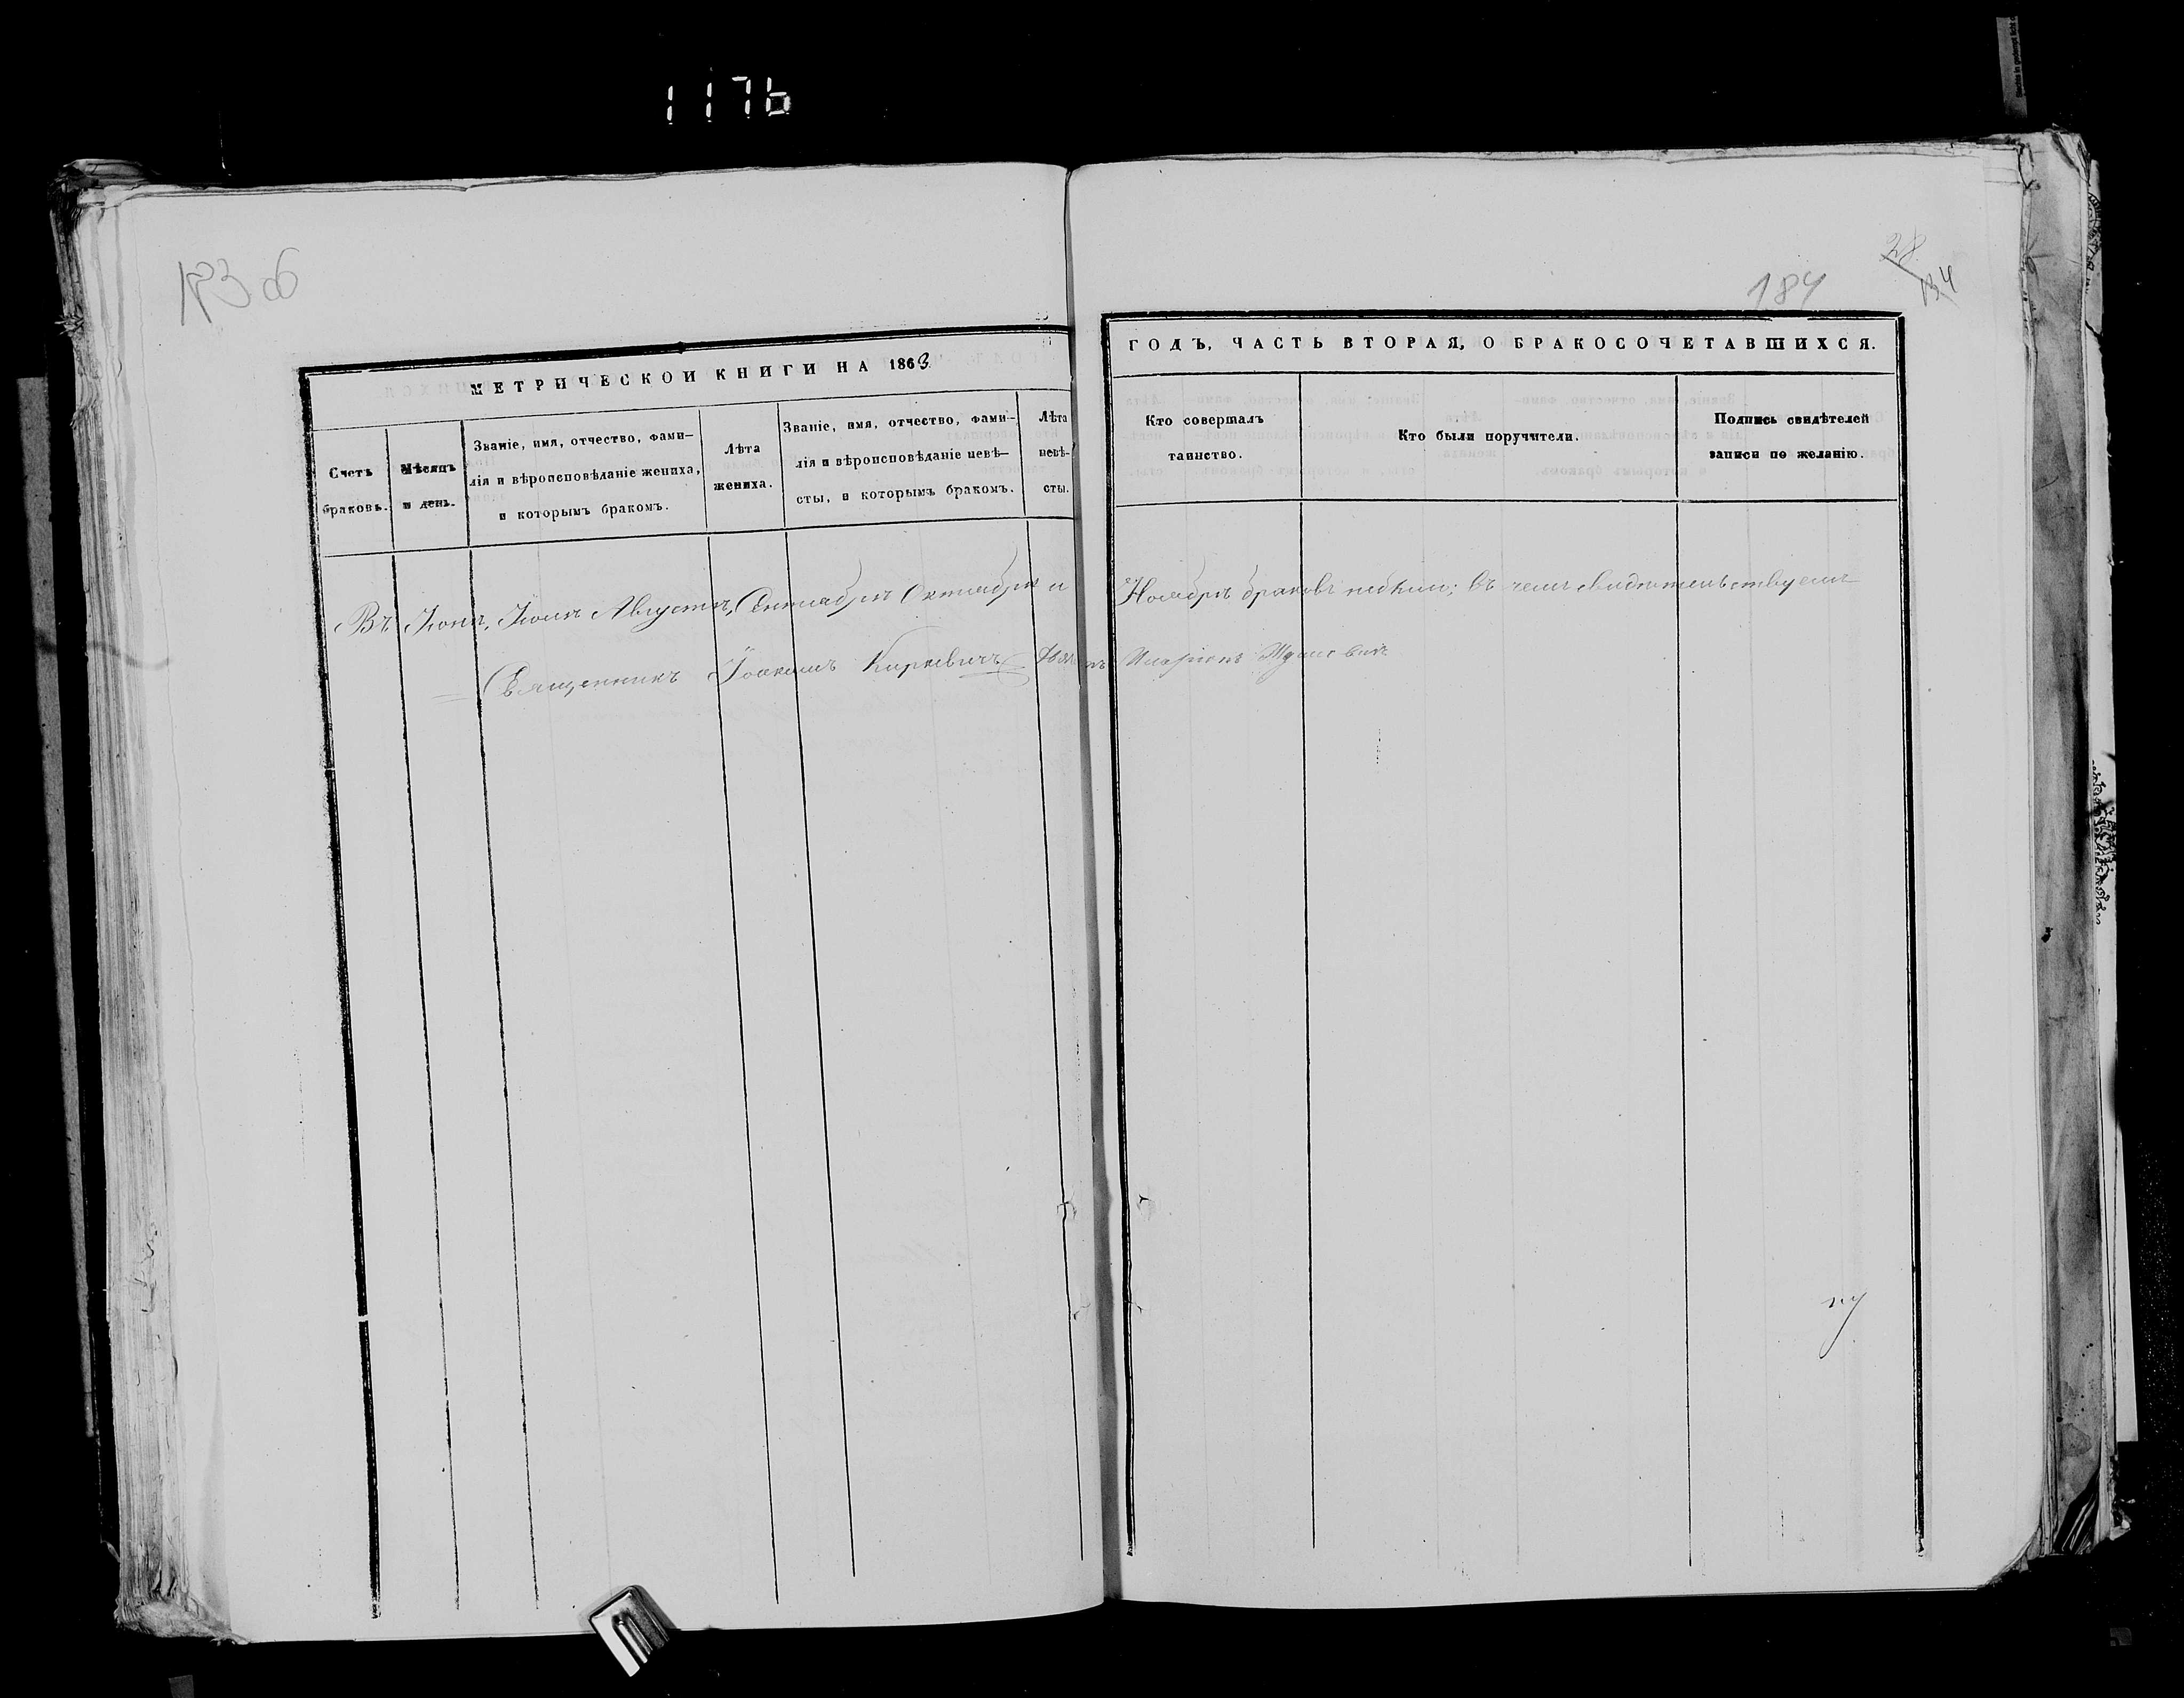 1176
183 об
184
28
134
МЕТРИЧЕСКОЙ КНИГИ НА 1863
ГОДЪ, ЧАСТЬ ВТОРАЯ, О БРАКОСОЧЕТАВШИХСЯ.
Счетъ
браковъ.
Мѣсяцъ
и день.
Званіе, имя, отчество, фами-
лія и вѣроисповѣданіе жениха,
и которымъ бракомъ.
Лѣта
жениха.
Званіе, имя, отчество, фами-
лія и вѣроисповѣданіе невѣ-
сты, и которымъ бракомъ.
Лѣта
невѣ-
сты.
Кто совершалъ
таинство.
Кто были поручители.
Подпись свидѣтелей
записи по желанію.
Въ Іюнѣ, Іюлѣ Августѣ, Сентябрѣ Октябрѣ и Ноябрѣ браковъ небыло; въ чемъ свидѣтельствуемъ
Священникъ Іоакимъ Киркевичъ Иларіонъ